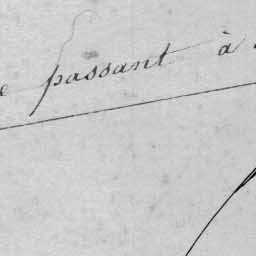 passant à